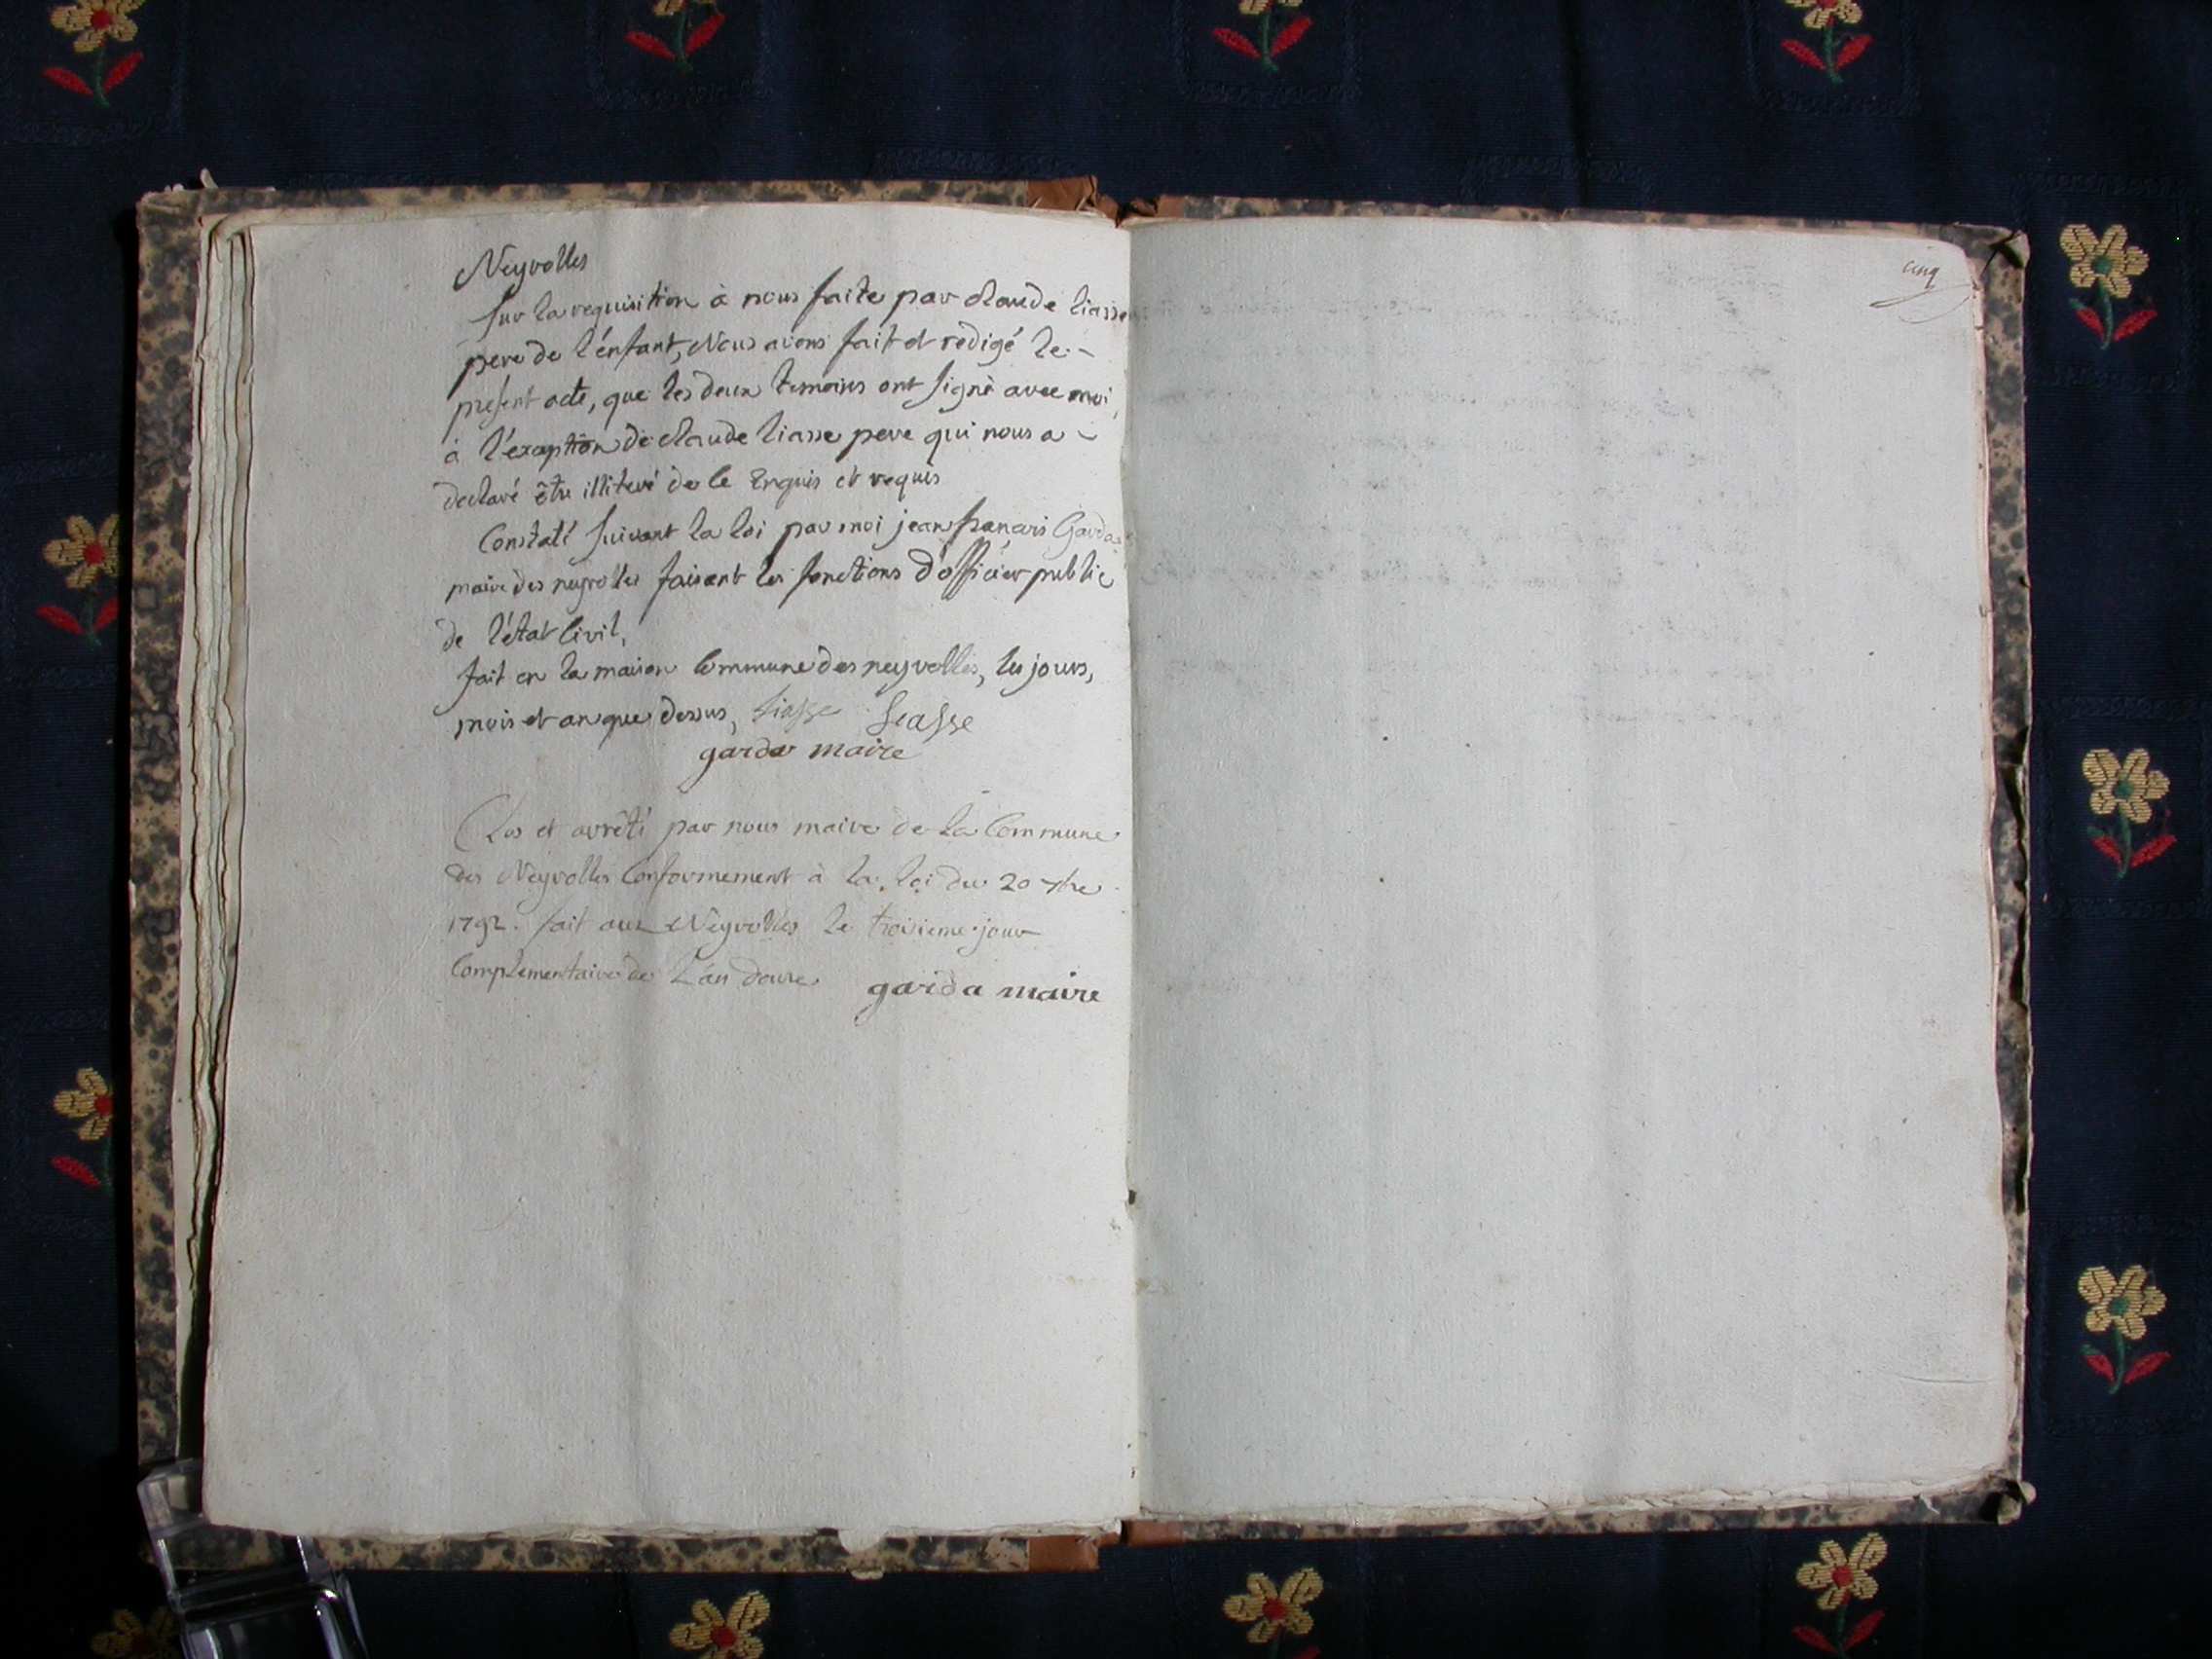 Neyrolles
Sur la requisition à nous faite par claude liasse
pere de l'énfant, Nous avons fait et redigé le -
present acte, que les deux temoins ont signé avec moi,
à l'éxaption de claude liasse pere qui nous a -
declaré être illiteré de ce Enquis et requis
Constaté suivant la loi par moi jean françois Garda
maire des neyrolles faisant les fonctions d'officier public
de l'état Civil,
fait en la maison Commune des neyrolles, les jours,
mois et an que dessus, Liasse Liasse
garda maire
Clos et arrêté par nous maire de la Commune
des Neyrolles Conformement à la loi du 20 7bre
1792. fait aux Neyrolles le troisieme jour
Complementaire de L'an douze garda maire
cinq